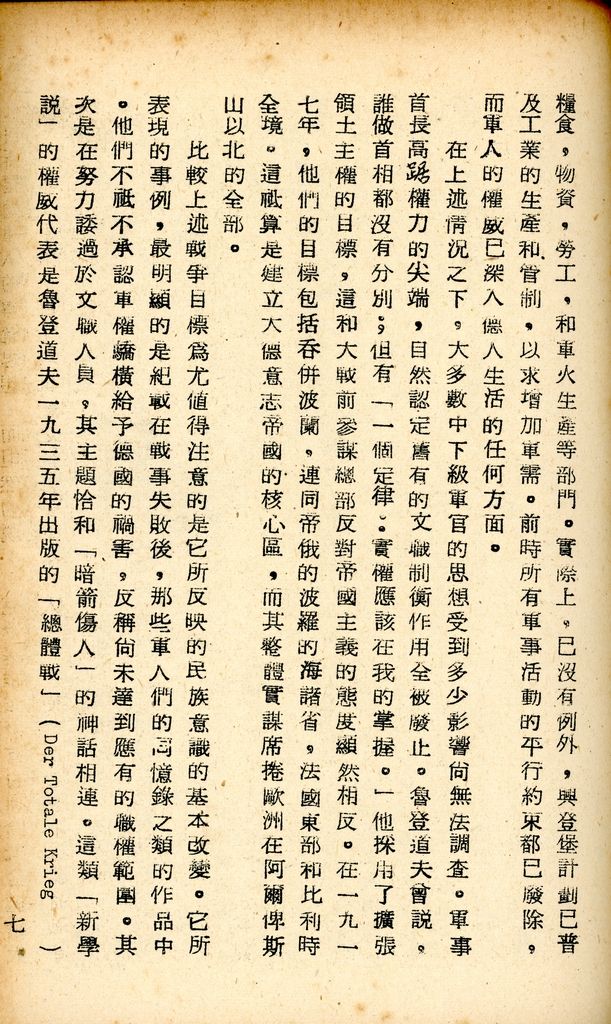 糧食，物資，勞工，和軍火生產等部門。實際上，已沒有例外，興登堡計劃已普
及工業的生產和管制，以求增加軍需。前時所有軍事活動的平行約束都已廢除，
而軍人的權威已深入德人生活的任何方面。
在上述情況之下，大多數中下級軍官的思想受到多少影響尙無法調查。軍事
首長高踞權力的尖端，自然認定舊有的文職制衡作用全被廢止。魯登道夫曾說。
誰做首相都沒有分別；但有「一個定律：實權應該在我的掌握。」他採用了擴張
領土主權的目標，這和大戰前參謀總部反對帝國主義的態度顯然相反。在一九一
七年，他們的目標包括吞併波蘭，連同帝俄的波羅的海諸省，法國東部和比利時
全境。這祇算是建立大德意志帝國的核心區，而其整體實謀席捲歐洲在阿爾俾斯
山以北的全部。
比較上述戰爭目標爲尤值得注意的是它所反映的民族意識的基本改變。它所
表現的事例，最明顯的是紀載在戰事失敗後，那些軍人們的囘憶錄之類的作品中
。他們不祇不承認軍權驕橫給予德國的禍害，反稱尙未達到應有的職權範圍。其
次是在努力諉過於文職人員，其主題恰和「暗箭傷人」的神話相連。這類「新學
說」的權威代表是魯登道夫一九三五年出版的「總體戰」（Der Totale Krieg）
七